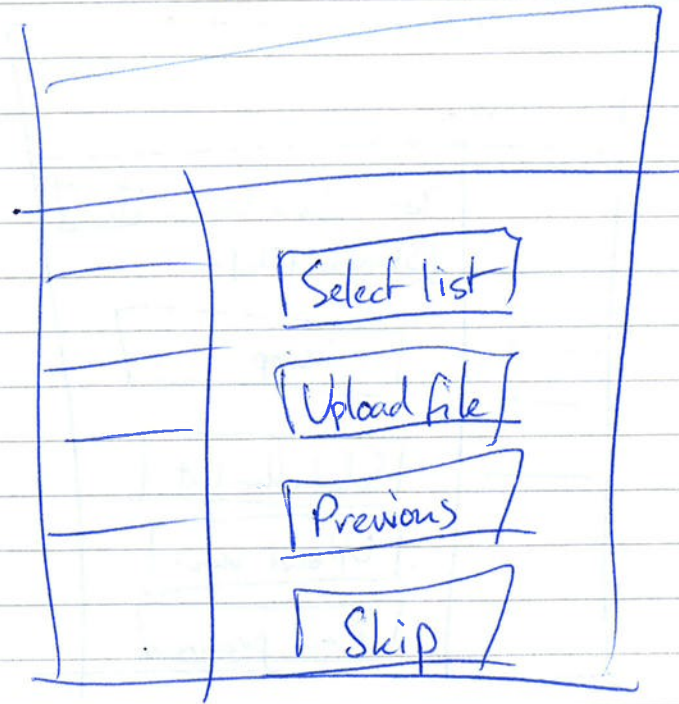 Select list
Upload file
Previous
Skip